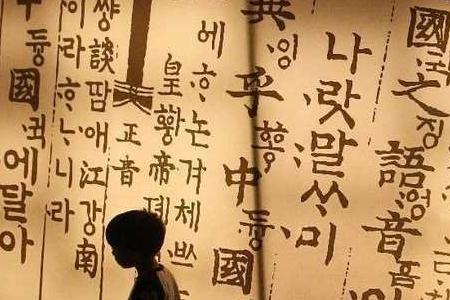 國귁之징語엉音흠
나랏말ᄊᆞ미
異잉乎ᅘᅩᆼ中듕國
에ᄒᆞ논겨체ᄡᅳ
皇황帝뎽
正音
썅談땀애江강南
이라ᄒᆞᄂᆞ니라
中듕國귁에달아